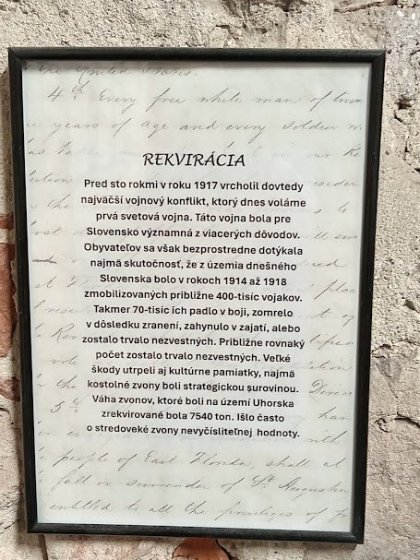 the United States.
4th Every free white man of
years of age and every soldier
REKVIRÁCIA
Pred sto rokmi v roku 1917 vrcholil dovtedy
najväčší vojnový konflikt, ktorý dnes voláme
prvá svetová vojna. Táto vojna bola pre
Slovensko významná z viacerých dôvodov.
Obyvateľov sa však bezprostredne dotýkala
najmä skutočnosť, že z územia dnešného
Slovenska bolo v rokoch 1914 až 1918
zmobilizovaných približne 400-tisíc vojakov.
Takmer 70-tisíc ich padlo v boji, zomrelo
v dôsledku zranení, zahynulo v zajatí, alebo
zostalo trvalo nezvestných. Približne rovnaký
počet zostalo trvalo nezvestných. Veľké
škody utrpeli aj kultúrne pamiatky, najmä
kostolné zvony boli strategickou surovinou.
Váha zvonov, ktoré boli na území Uhorska
zrekvirované bola 7540 ton. Išlo často
o stredoveké zvony nevyčísliteľnej hodnoty.
people of East Florida, shall at
fall or surrender of St Augustin
entitled to all the privileges of